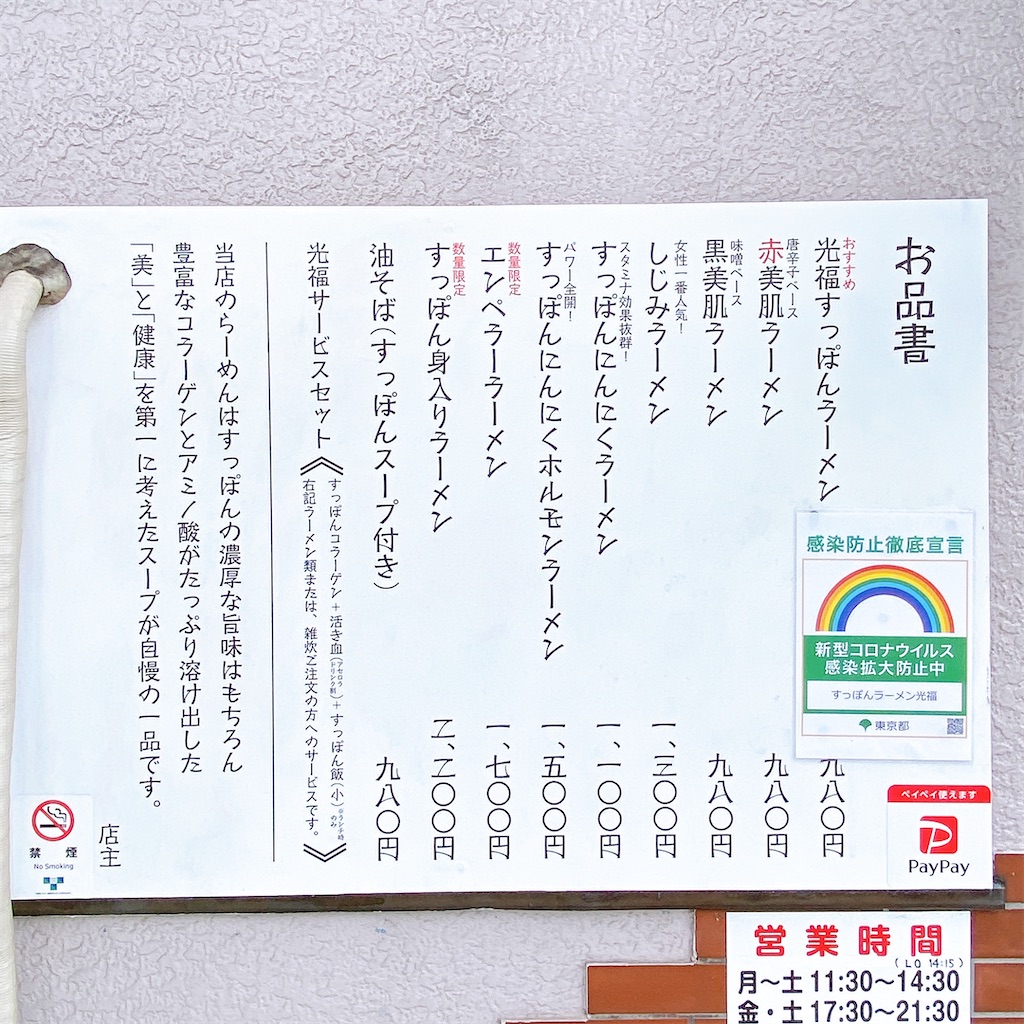 お品書
おすすめ
光福すっぽんラーメン 九八〇円
唐辛子ベース
赤美肌ラーメン 九八〇円
味噌ベース
黒美肌ラーメン 九八〇円
女性一番人気！
しじみラーメン 一、三〇〇円
スタミナ効果抜群！
すっぽんにんにくラーメン 一、一〇〇円
パワー全開！
すっぽんにんにくホルモンラーメン 一、五〇〇円
数量限定
エンペラーラーメン 一、七〇〇円
数量限定
すっぽん身入りラーメン 二、二〇〇円
油そば（すっぽんスープ付き） 九八〇円
光福サービスセット
《すっぽんコラーゲン＋活き血（アセロラドリンク割）＋すっぽん飯（小）※ランチ時のみ
右記ラーメン類または、雑炊ご注文の方へのサービスです。》
当店のらーめんはすっぽんの濃厚な旨味はもちろん
豊富なコラーゲンとアミノ酸がたっぷり溶け出した
「美」と「健康」を第一に考えたスープが自慢の一品です。
店主
感染防止徹底宣言
新型コロナウイルス
感染拡大防止中
すっぽんラーメン光福
東京都
ペイペイ使えます
PayPay
禁煙
No Smoking
営業時間
(LO 14:15)
月～土 11:30～14:30
金・土 17:30～21:30